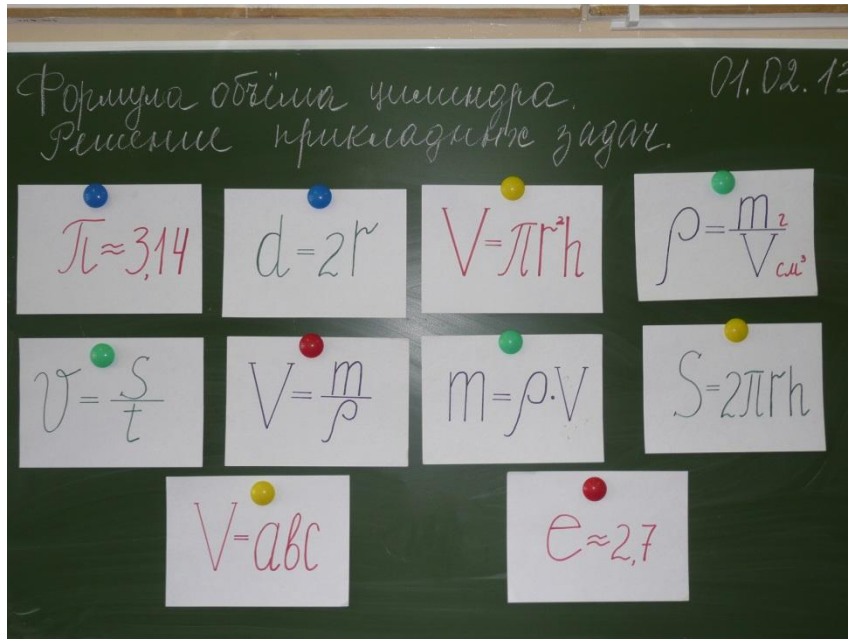 Формула объёма цилиндра. 01.02.13
Решение прикладных задач.
π≈3,14
d=2r
V=πr²h
ρ=m г/V см³
v=S/t
V=m/ρ
m=ρ·V
S=2πrh
V=abc
e≈2,7